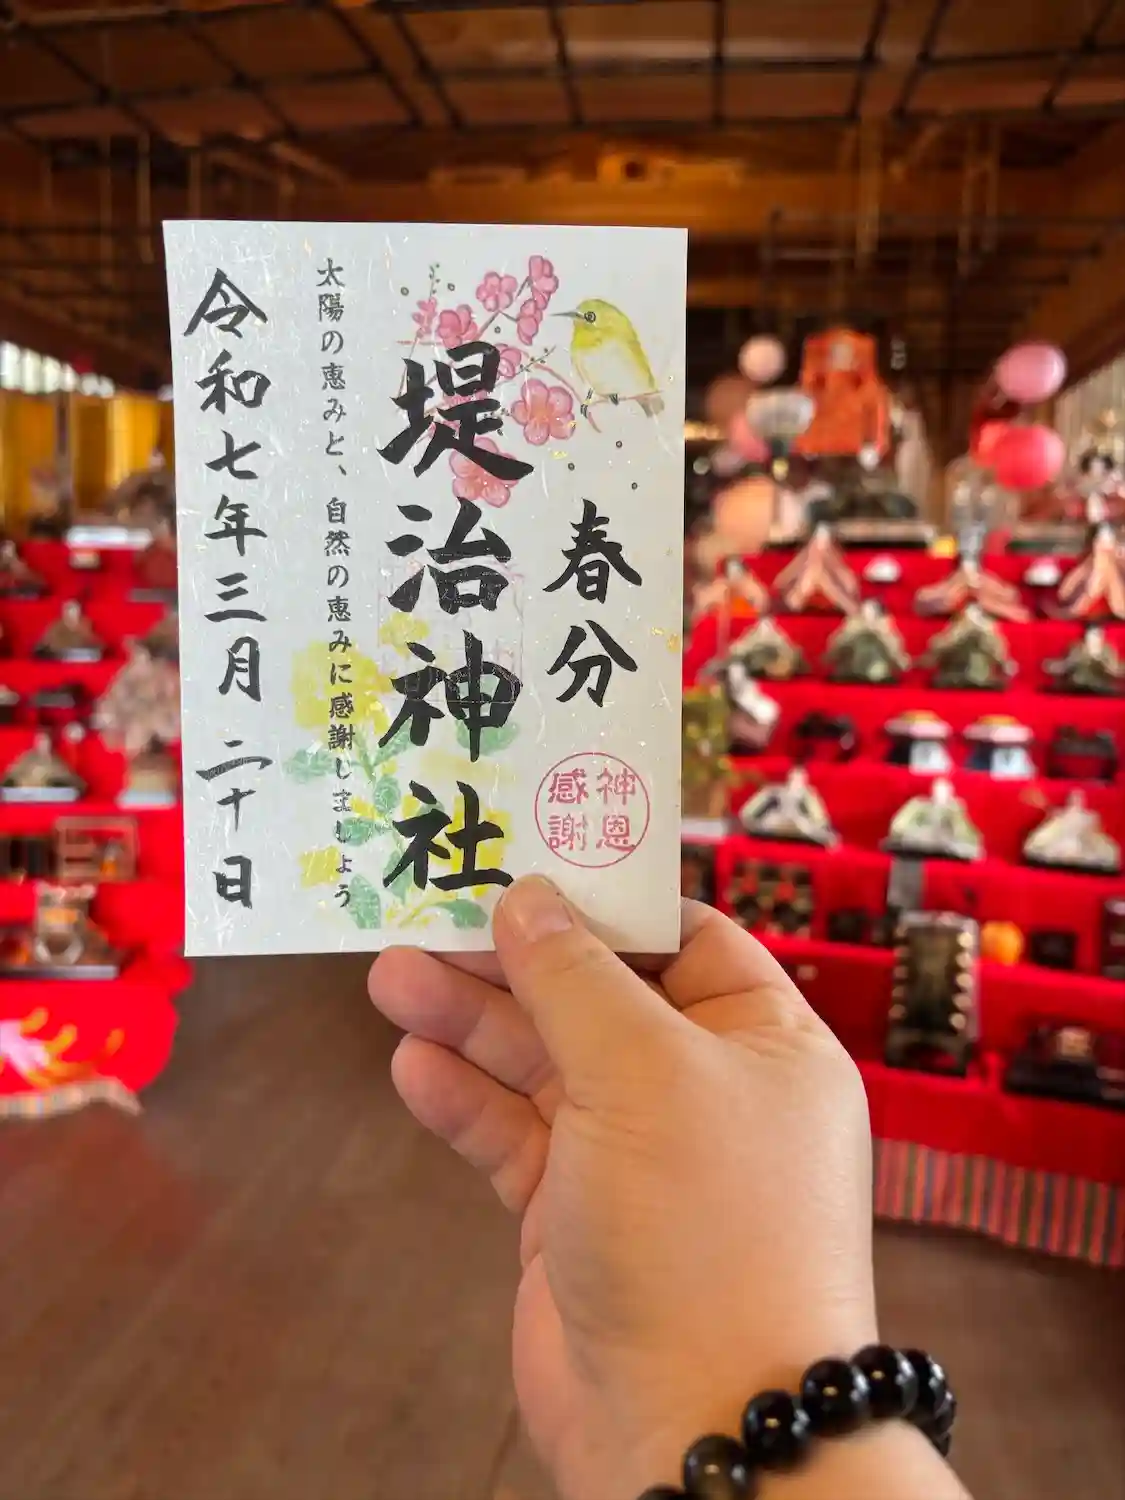 春分
神恩
感謝
堤治神社
太陽の恵みと、自然の恵みに感謝しましょう
令和七年三月二十日